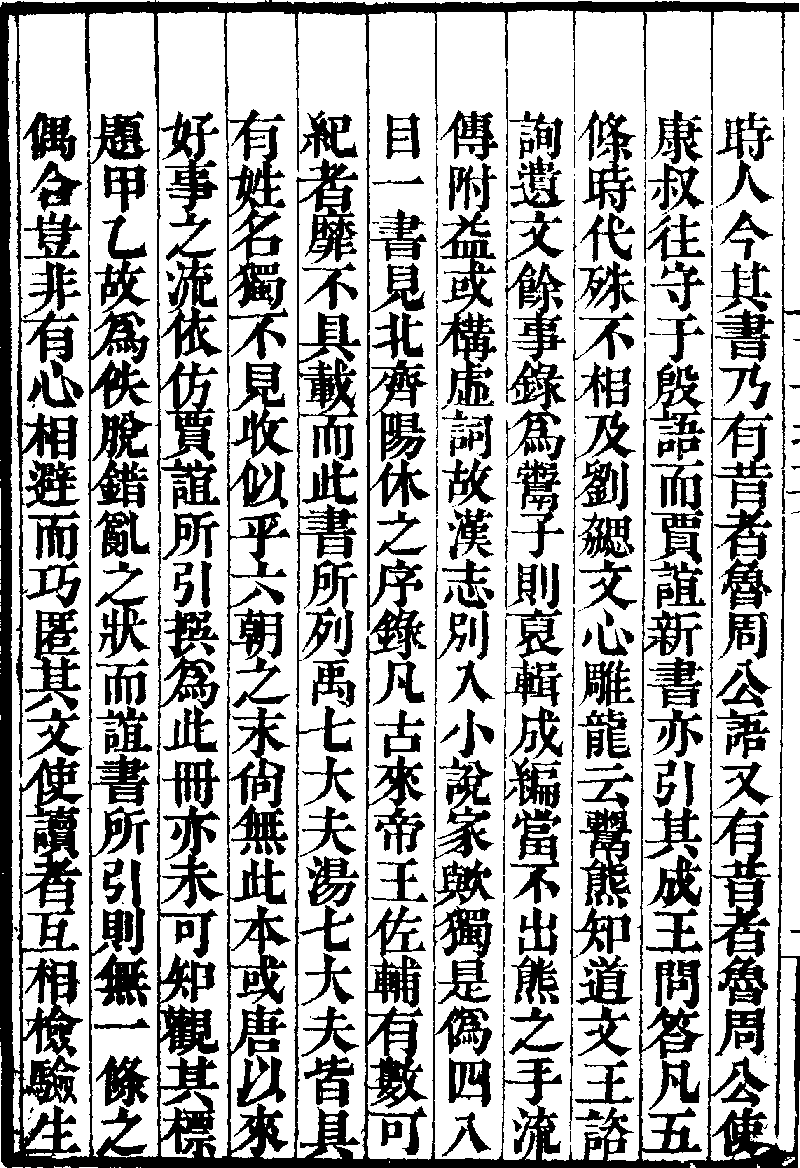 時人今其書乃有昔者魯周公語又有昔者魯周公使
康叔往守于殷語而賈誼新書亦引其成王問答凡五
條時代殊不相及劉勰文心雕龍云鬻熊知道文王諮
詢遺文餘事錄為鬻子則裒輯成編當不出熊之手流
傳附益或構虛詞故漢志別入小說家歟獨是偽四八
目一書見北齊陽休之序錄凡古來帝王佐輔有數可
紀者靡不具載而此書所列禹七大夫湯七大夫皆具
有姓名獨不見收似乎六朝之末尚無此本或唐以來
好事之流依仿賈誼所引撰為此冊亦未可知觀其標
題甲乙故為佚脫錯亂之狀而誼書所引則無一條之
偶合豈非有心相避而巧匿其文使讀者互相檢驗生